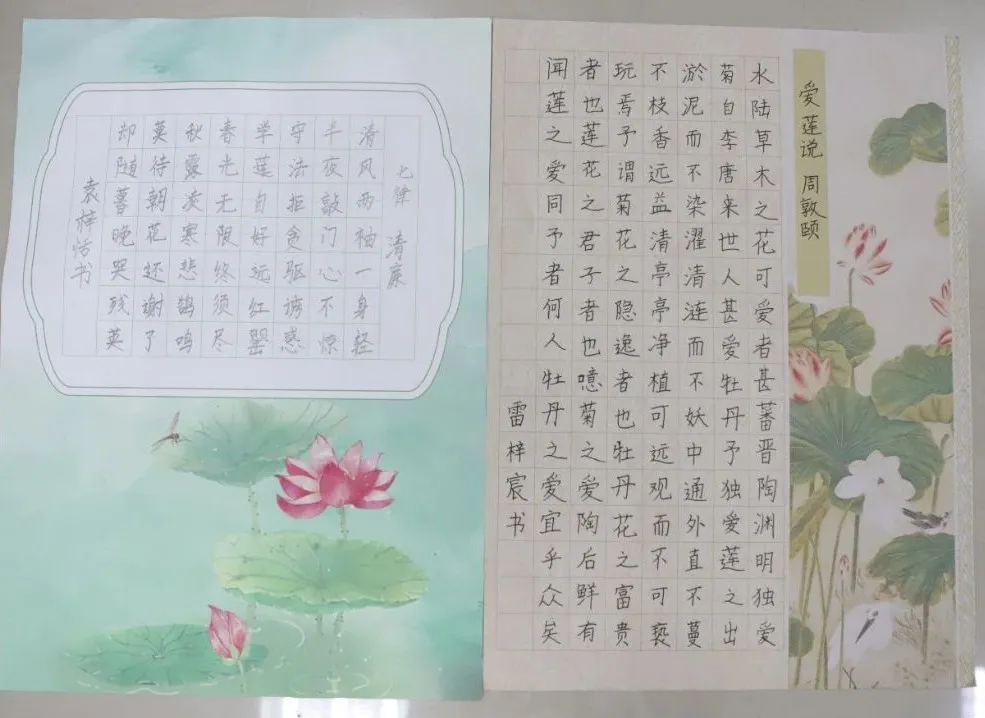 七律 清廉
清风两袖一身轻
半夜敲门心不惊
守法拒贪驱诱惑
学莲自好远红罂
春光无限终须尽
秋露寒悲鹄鸣
莫待朝花还谢了
却随晚哭残英
袁梓恬书
爱莲说 周敦颐
水陆草木之花可爱者甚蕃晋陶渊明独爱
菊自李唐来世人甚爱牡丹予独爱莲之出
淤泥而不染濯清涟而不妖中通外直不蔓
不枝香远益清亭亭净植可远观而不可亵
玩焉予谓菊花之隐逸者也牡丹花之富贵
者也莲花之君子者也噫菊之爱陶后鲜有
闻莲之爱同予者何人牡丹之爱宜乎众矣
雷梓宸书